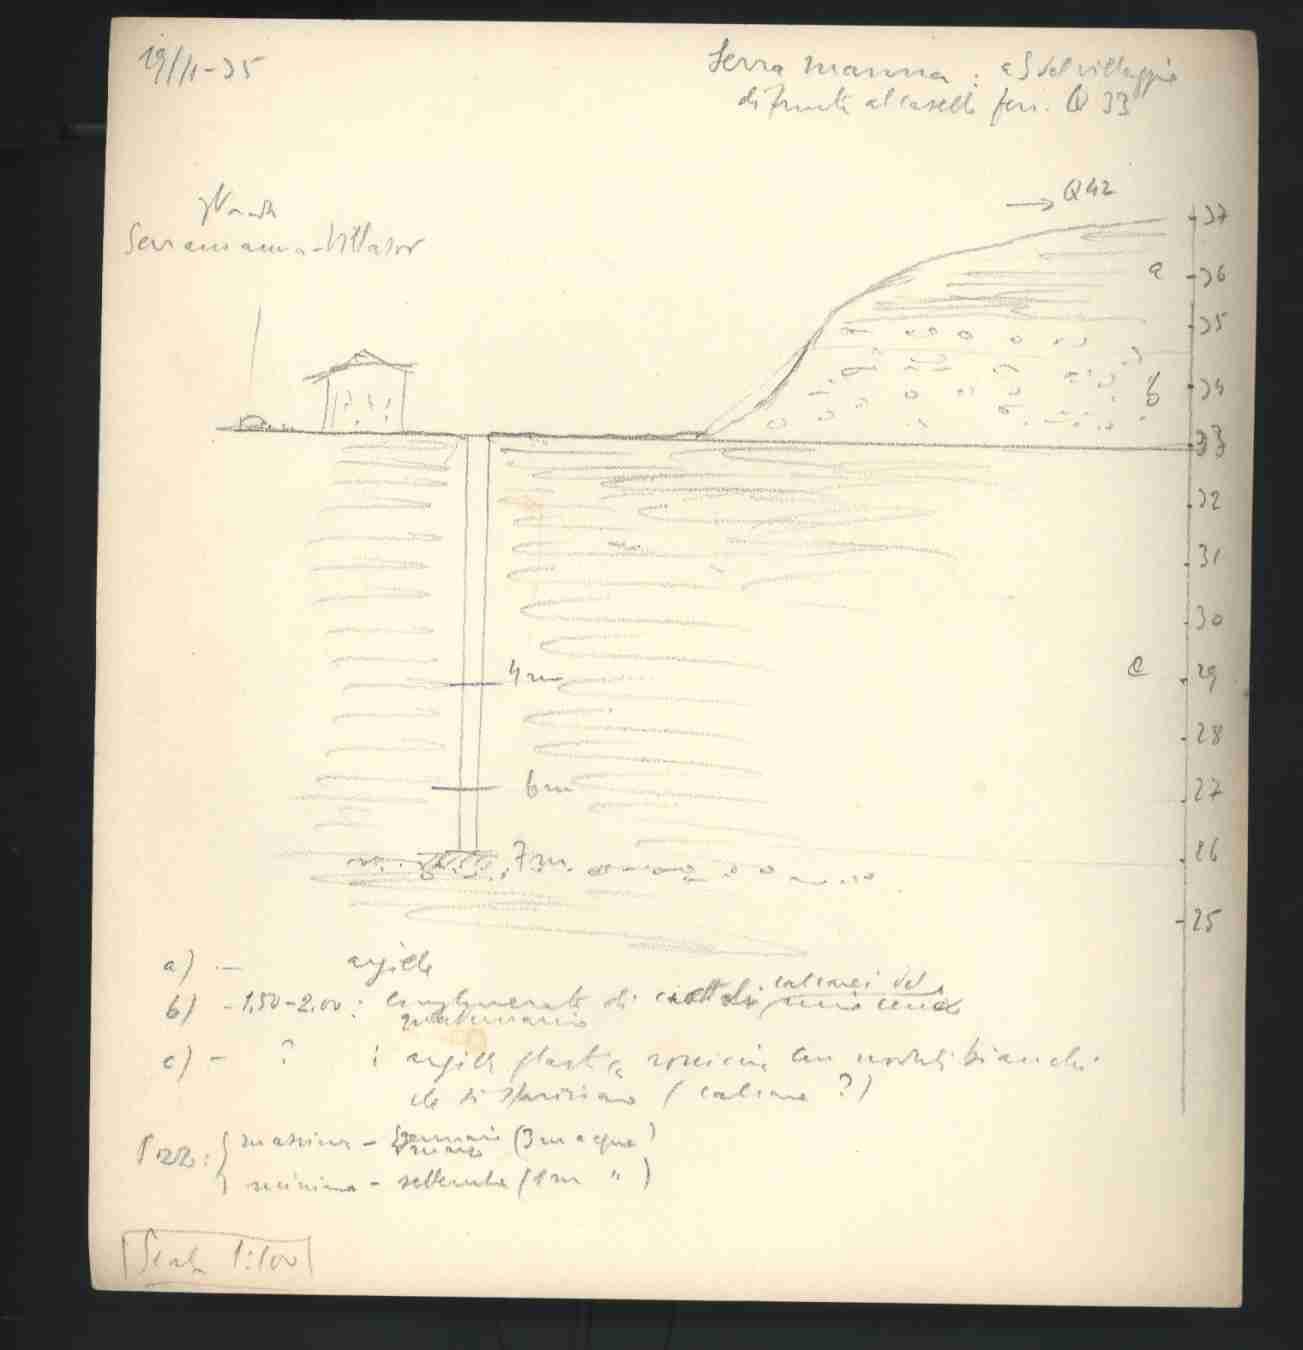 19/11-35
Serramanna: a S del villaggio
di fronte al casello ferr. Q 33
Serramanna-Villasor
→ Q 42
37
a
36
35
34
b
33
32
31
30
c
29
28
27
26
25
4 m
6 m
7 m.
a) — argille
b) - 1,50-2,00: conglomerato di ciottoli calcarei del miocene
quaternario
c) - ? : argille plastiche rossicce con noduli bianchi
che si sfarinano (calcare ?)
Pozzo: { massima - gennaio (3 m acqua)
marzo
minima - settembre (1 m ")
Scala 1:100